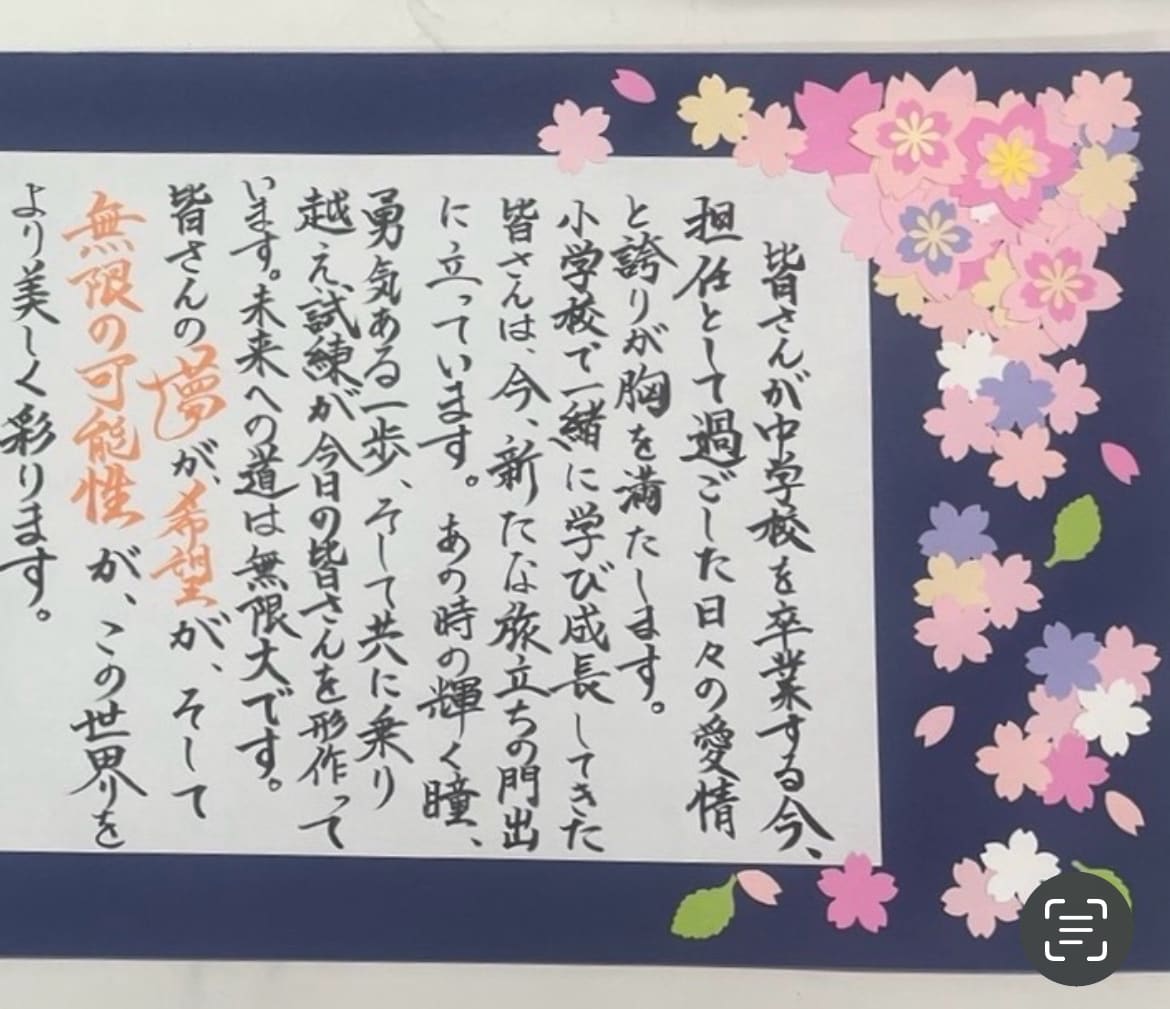 皆さんが中学校を卒業する今、
担任として過ごした日々の愛情
と誇りが胸を満たします。
小学校で一緒に学び成長してきた
皆さんは、今、新たな旅立ちの門出
に立っています。あの時の輝く瞳、
勇気ある一歩、そして共に乗り
越え、試練が今日の皆さんを形作って
います。未来への道は無限大です。
皆さんの夢が、希望が、そして
無限の可能性が、この世界を
より美しく彩ります。